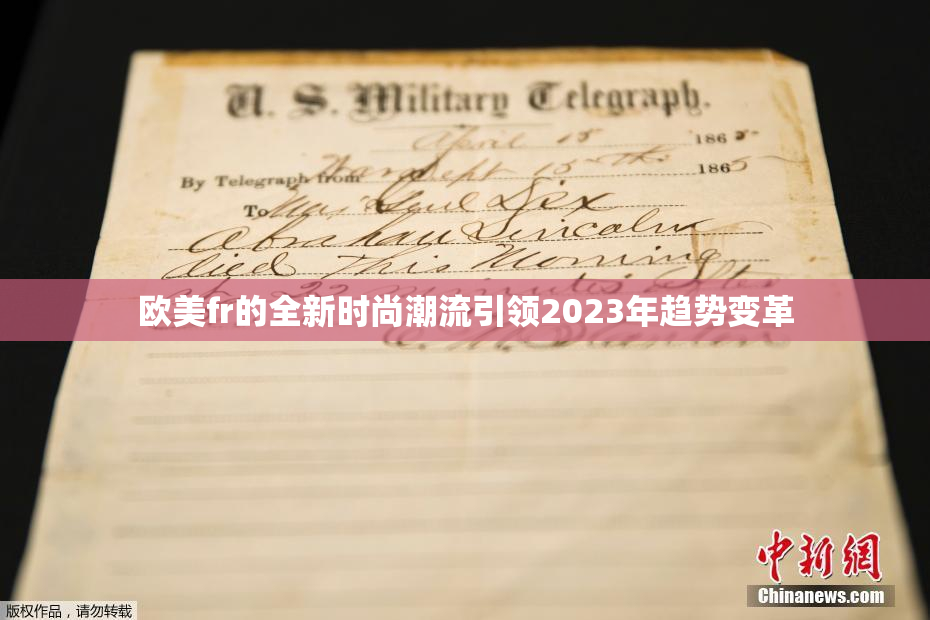 U. S. Military Telegraph.
April 15 1865
By Telegraph from War Dept 15th 1865
To Maj Genl Dix
Abraham Lincoln
died This Morning
at 22 minutes after
欧美fr的全新时尚潮流引领2023年趋势变革
E. M. Stanton
中新网
Chinanews.com
版权作品，请勿转载